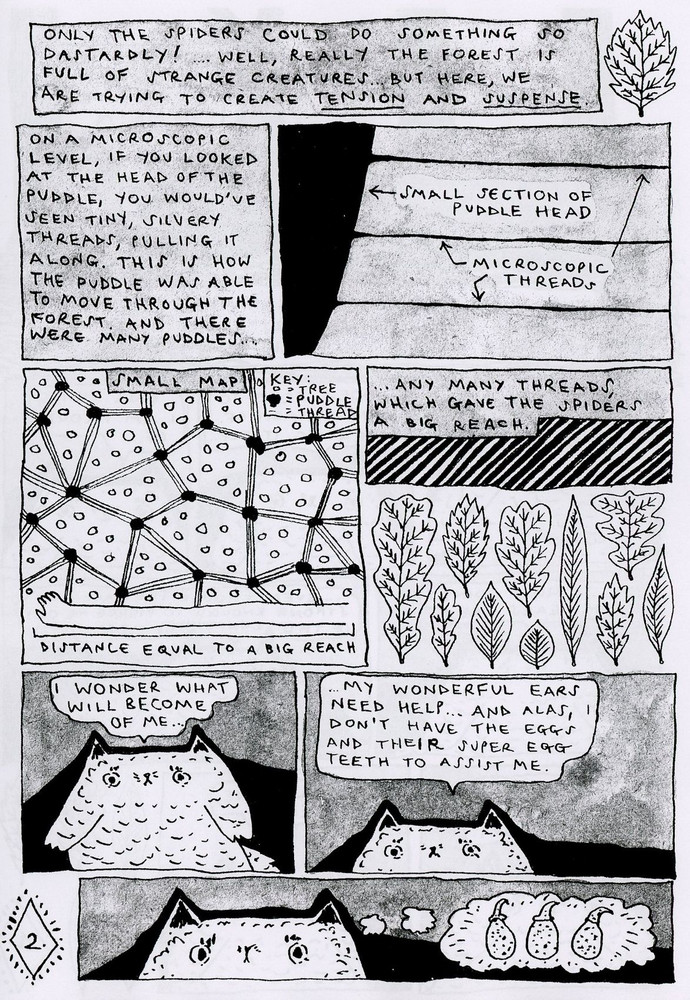 ONLY THE SPIDERS COULD DO SOMETHING SO
DASTARDLY! ... WELL, REALLY THE FOREST IS
FULL OF STRANGE CREATURES... BUT HERE, WE
ARE TRYING TO CREATE TENSION AND SUSPENSE.
ON A MICROSCOPIC
LEVEL, IF YOU LOOKED
AT THE HEAD OF THE
PUDDLE, YOU WOULD'VE
SEEN TINY, SILVERY
THREADS, PULLING IT
ALONG. THIS IS HOW
THE PUDDLE WAS ABLE
TO MOVE THROUGH THE
FOREST. AND THERE
WERE MANY PUDDLES...
SMALL SECTION OF
PUDDLE HEAD
MICROSCOPIC
THREADS
SMALL MAP
KEY:
= TREE
= PUDDLE
= THREAD
DISTANCE EQUAL TO A BIG REACH
...ANY MANY THREADS,
WHICH GAVE THE SPIDERS
A BIG REACH.
I WONDER WHAT
WILL BECOME
OF ME...
...MY WONDERFUL EARS
NEED HELP... AND ALAS, I
DON'T HAVE THE EGGS
AND THEIR SUPER EGG
TEETH TO ASSIST ME.
2